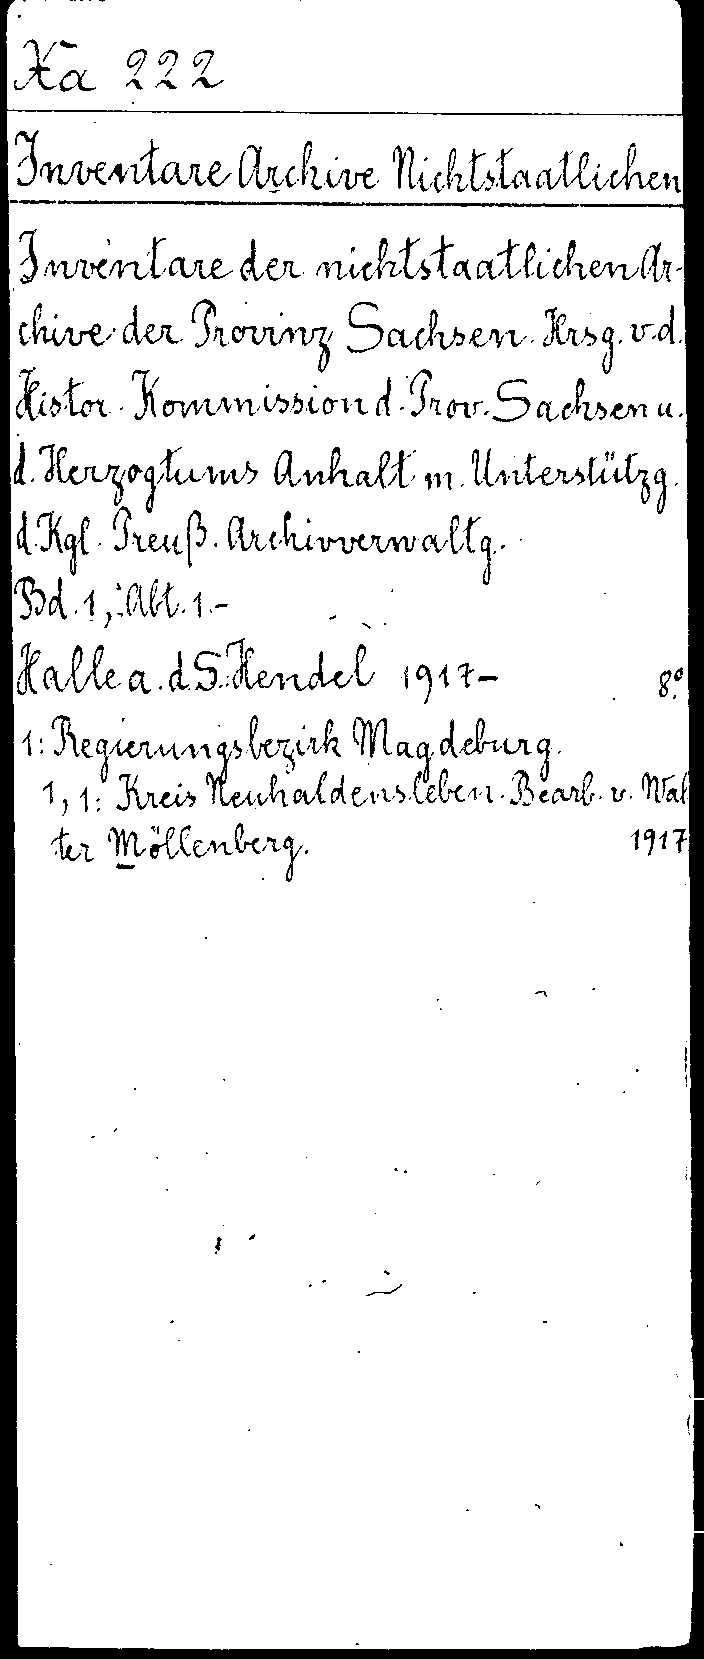 Xa 222
Inventare Archive Nichtstaatlichen
Inventare der nichtstaatlichen Ar-
chive der Provinz Sachsen. Hrsg. v. d.
Histor. Kommission d. Prov. Sachsen u.
d. Herzogtums Anhalt m. Unterstützg.
d. Kgl. Preuß. Archivverwaltg.
Bd. 1, Abt. 1.-
Halle a. d. S.: Hendel 1917- 8°.
1: Regierungsbezirk Magdeburg.
1,1: Kreis Neuhaldensleben. Bearb. v. Wal
ter Möllenberg. 1917